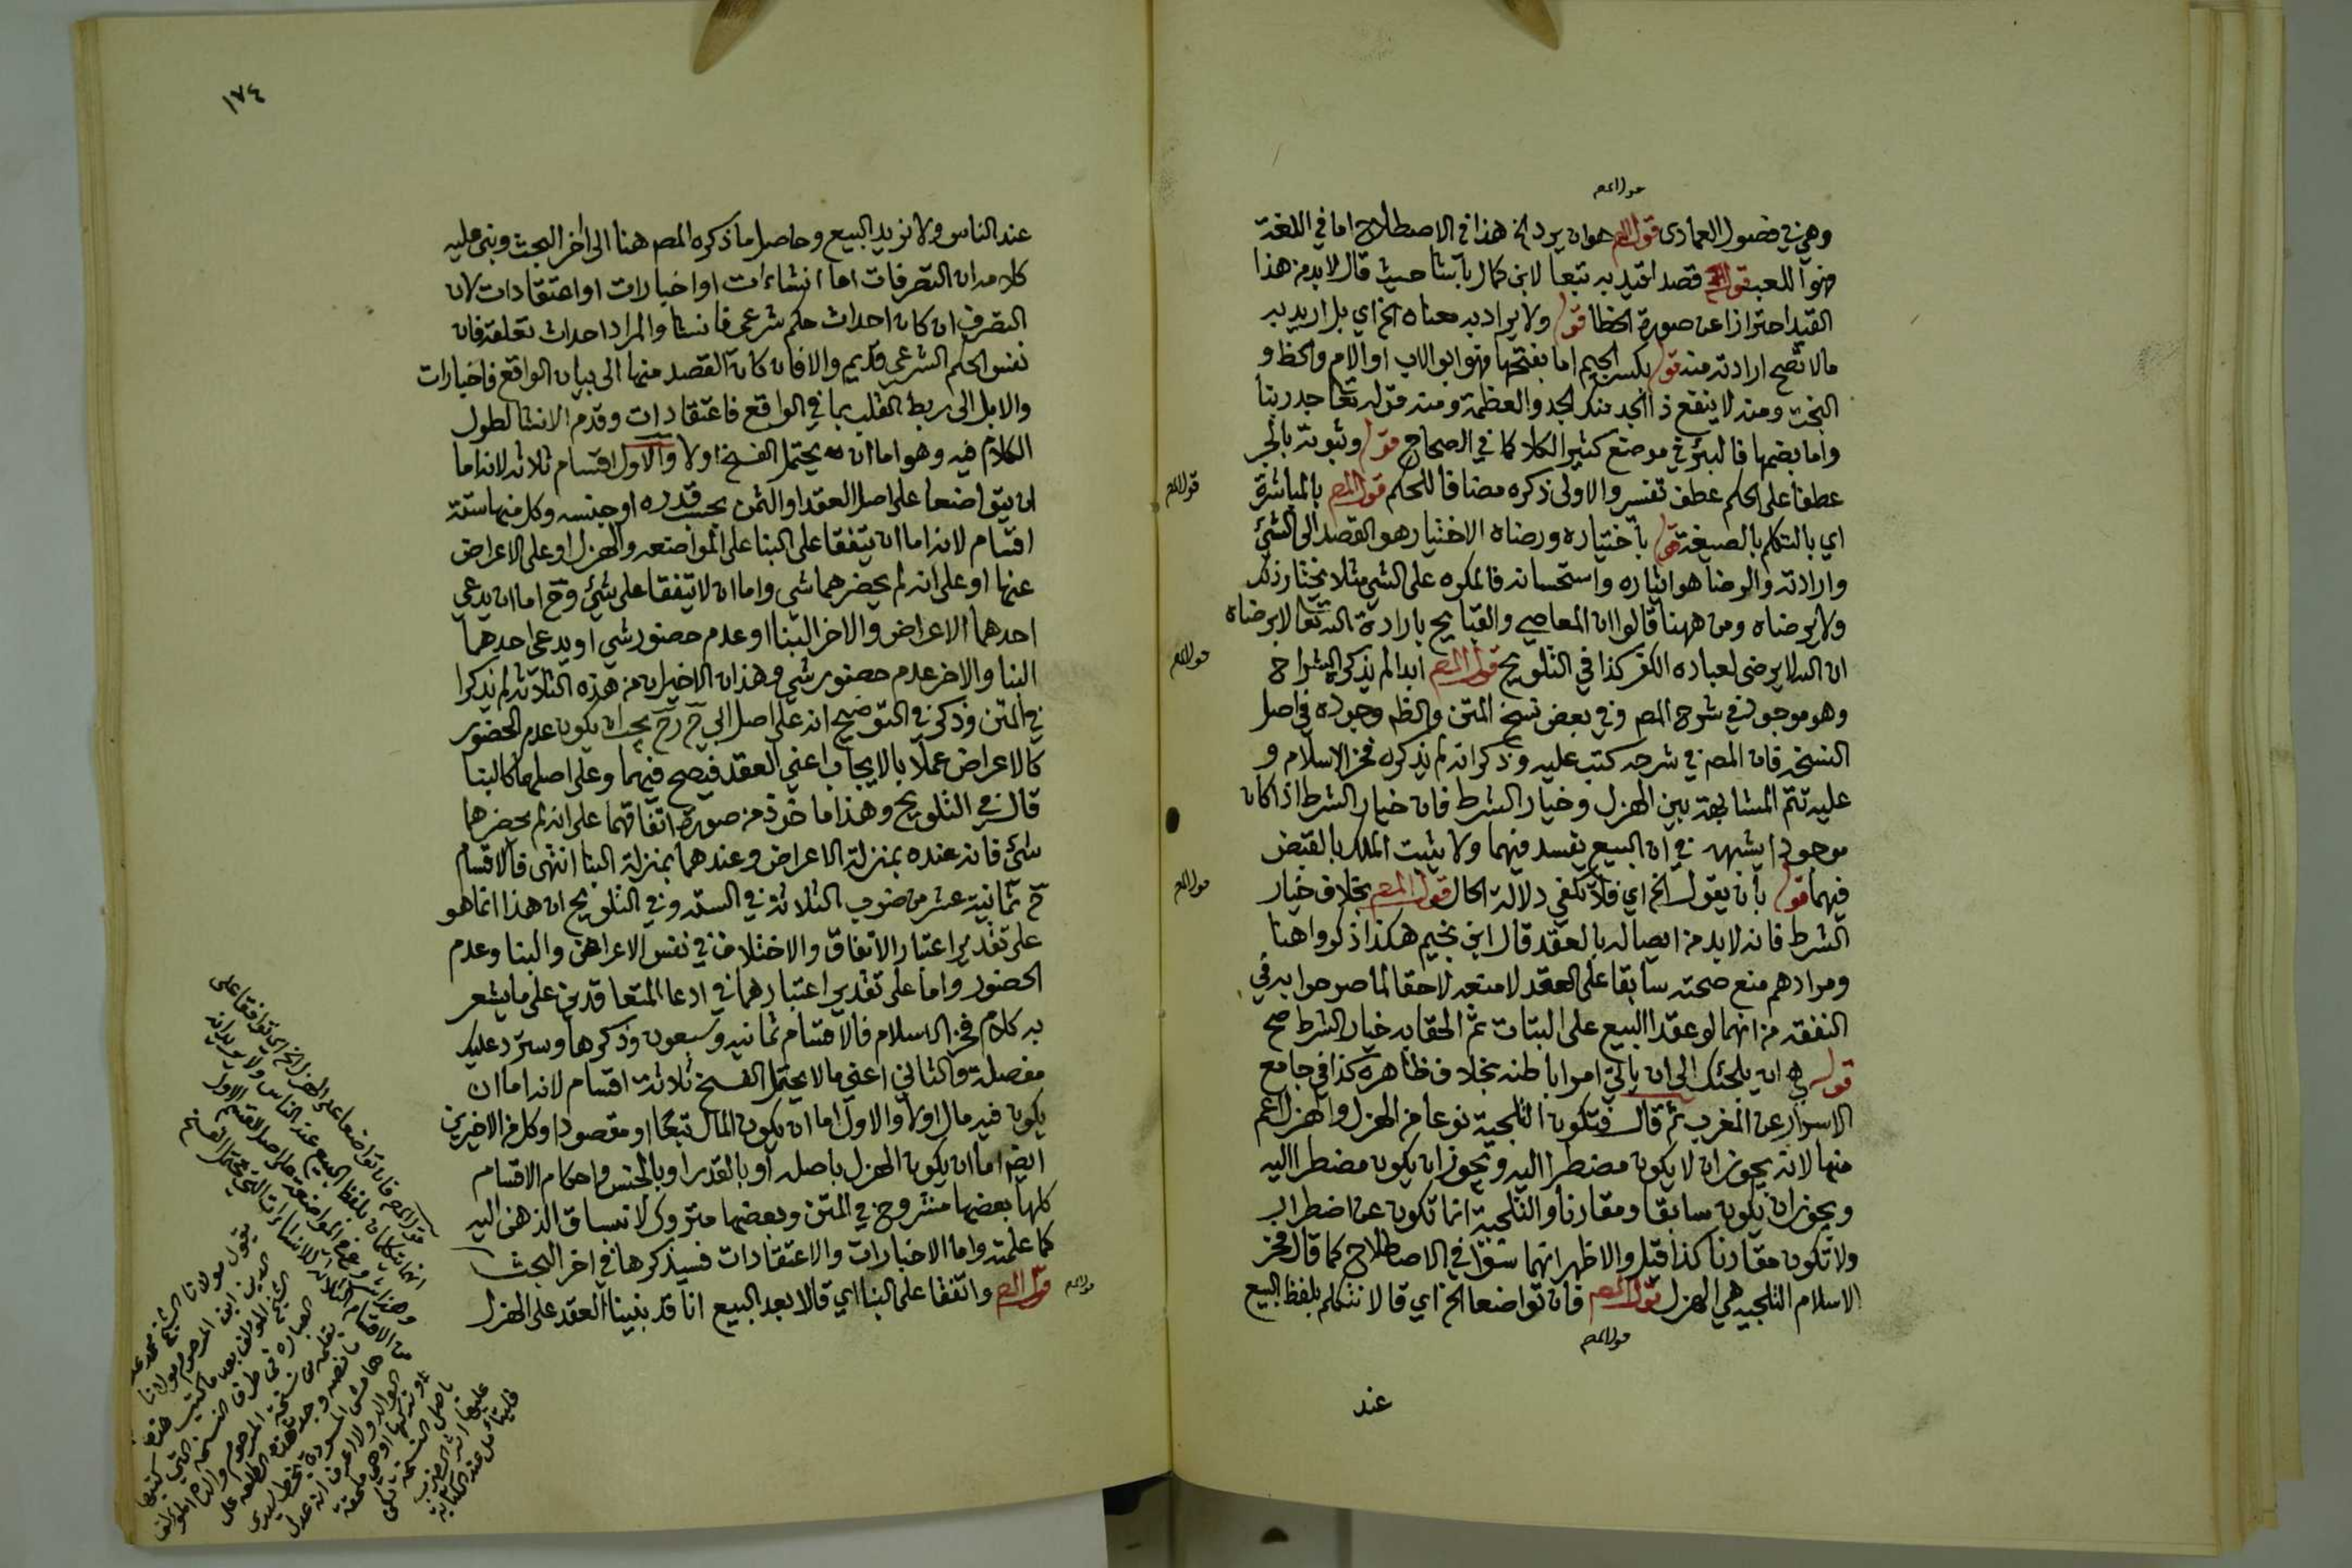 قول المص
وهي في فصول العمادى قول المص هو ان يراد الخ هذا في الاصطلاح اما في اللغة
فهو اللعب قول المص قصد لقيد به تبعا لابن كمال باشا حيث قال لابد من هذا
القيد احترازا عن صورة الخطا قوله ولا يراد به معناه الخ اي بل اريد به
مالا تصح ارادته منه قوله بكسر الجيم اما بفتحها فهو ابو الاب او الام والحظ و
البخت ومنه لا ينفع ذا الجد منك الجد والعظمة ومنه قوله تعا جد ربنا
واما بضمها فالبئر في موضع كثير الكلا كما في الصحاح قوله وثبوته بالجر
عطفا على الحكم عطف تفسير والاولى ذكره مضافا للحكم قول المص بالمباشرة
قول المص
اي بالتكلم بالصيغة قوله باختياره ورضاه الاختيار هو القصد الى الشئ
وارادته والرضا هو ايثاره واستحسانه فالمكره على الشي مثلا يختار ذلك
ولا يرضاه ومن ههنا قالوا ان المعاصي والقبايح بارادة الله تعا لا برضاه
ان الله لا يرضى لعباده الكفر كذا في التلويح قول المص ابدا لم يذكره الشراح
قول المص
وهو موجود في شرح المص وفي بعض نسخ المتن والظم وجوده في اصل
النسخة فان المص في شرحه كتب عليه وذكر انه لم يذكره فخر الاسلام و
عليه تتم المشابهة بين الهزل وخيار الشرط فان خيار الشرط اذا كان
موجودا يشبهه في ان البيع يفسد فيهما ولا يثبت الملك بالقبض
فيهما قوله بان يقول الخ اي فلا تكفي دلالة الحال قول المص بخلاف خيار
قول المص
الشرط فانه لابد من ايصاله بالعقد قال ابن نجيم هكذا ذكروا هنا
ومرادهم منع صحته سابقا على العقد لا منعه لاحقا لما صرحوا به في
النفقه من انهما لو عقدا البيع على البتات ثم الحقا به خيار الشرط صح
قوله هي ان يلجئك الى ان ياتي امرا باطنه بخلاف ظاهره كذا في جامع
الاسرار عن المغرب ثم قال فتكون التلجية نوعا من الهزل والهزل اعم
منها لانه يجوز ان لا يكون مضطرا اليه ويجوز ان يكون مضطرا اليه
ويجوز ان يكون سابقا ومقارنا والتلجية انما تكون عن اضطرار
ولا تكون مقارنا كذا قيل والاظهر انهما سوا في الاصطلاح كما قال فخر
الاسلام التلجيه هي الهزل قول المص فان تواضعا الخ اي قالا نتكلم بلفظ البيع
قول المص
عند
١٧٤
عند الناس ولا نريد البيع وحاصل ما ذكره المص هنا الى اخر البحث وبنى عليه
كلامه ان التصرفات اما انشاءات او اخبارات او اعتقادات لان
التصرف ان كان احداث حكم شرعي فانشا والمراد احداث تعلقه فان
نفس الحكم الشرعي قديم والا فان كان القصد منها الى بيان الواقع فاخبارات
والا بل الى ربط القلب بما في الواقع فاعتقادات وقدم الانشا لطول
الكلام فيه وهو اما ان يحتمل الفسخ اولا والاول اقسام ثلاثه لانه اما
ان يتواضعا على اصل العقد او الثمن بحسب قدره او جنسه وكل منها ستة
اقسام لانه اما ان يتفقا على البنا على المواضعه والهزل او على الاعراض
عنها او على انه لم يحضرهما شي واما ان لا يتفقا على شئ وح اما ان يدعي
احدهما الاعراض والاخر البنا او عدم حضور شي او يدعى احدهما
البنا والاخر عدم حضور شي وهذان الاخيران من هذه الثلاثه لم يذكرا
في المتن وذكر في التوضيح انه على اصل ابي ح رح يجب ان يكون عدم الحضور
كالاعراض عملا بالايجاب اعني العقد فيصح فيهما وعلى اصلهما كالبنا
قال في التلويح وهذا ماخوذ من صورة اتفاقهما على انه لم يحضرهما
شئ فانه عنده بمنزلة الاعراض وعندهما بمنزلة البنا انتهى فالاقسام
ح ثمانية عشر من ضرب الثلاثة في الستة وفي التلويح ان هذا انما هو
على تقدير اعتبار الاتفاق والاختلاف في نفس الاعراض والبنا وعدم
الحضور واما على تقدير اعتبارهما في ادعا المتعاقدين على ما يشعر
به كلام فخر الاسلام فالاقسام ثمانيه وسبعون وذكرها وسترد عليك
مفصلة والثاني اعني مالا يحتمل الفسخ ثلاثة اقسام لانه اما ان
يكون فيه مال اولا والاول اما ان يكون المال تبعا او مقصودا وكل من الاخيرين
ايضا اما ان يكون الهزل باصله او بالقدر او بالجنس واحكام الاقسام
كلها بعضها مشروح في المتن وبعضها متروك لانسباق الذهن اليه
كما علمته واما الاخبارات والاعتقادات فسيذكرها في اخر البحث
قول المص واتفقا على البنا اي قالا بعد البيع انا قد بنينا العقد على الهزل
قول المص
قول المص فان تواضعا على الهزل الخ اي توافقا على
انهما يتكلمان بلفظ البيع عند الناس ولا يريدانه
يقول مولانا الشيخ محمد
الدين ابن المرحوم مولانا
الشيخ المؤلف بعد ما كتب هذه